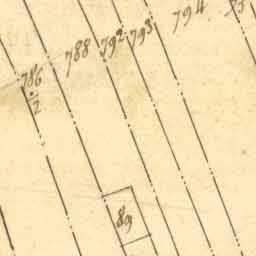 786/2 788 792 793 794
89